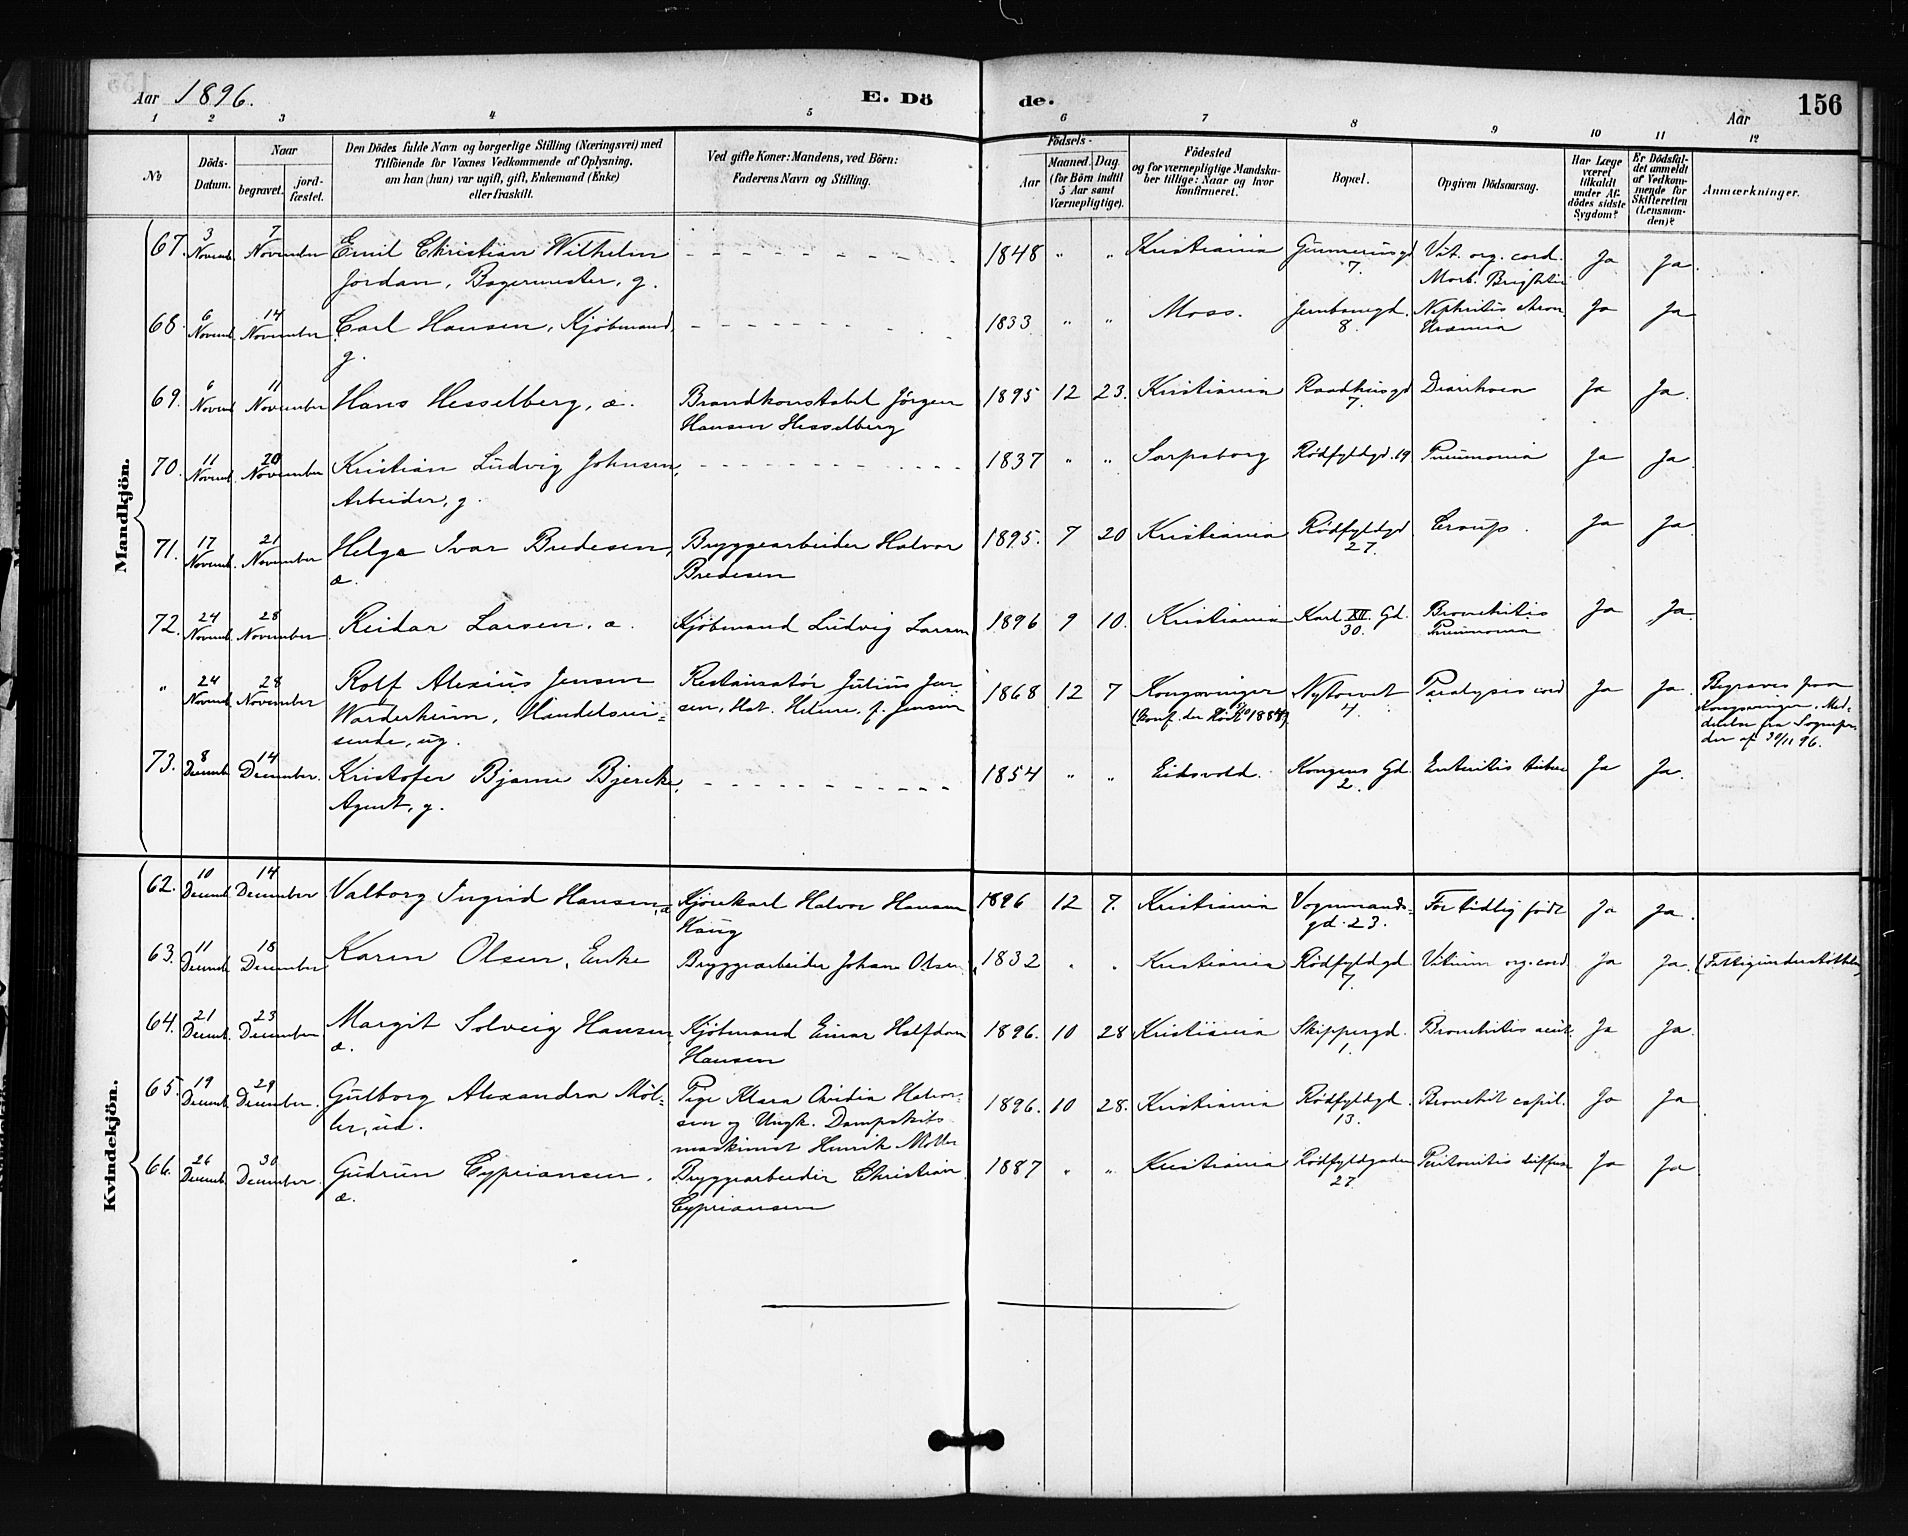 Aar 1896.
E. Dö
de.
Aar
156
1 2 3 4 5 6 7 8 9 10 11 12
No
Döds-
Datum.
Naar
begravet.
jord-
fæstet.
Den Dödes fulde Navn og borgerlige Stilling (Næringsvei) med
Tilföiende for Voxnes Vedkommende af Oplysning,
om han (hun) var ugift, gift, Enkemand (Enke)
eller fraskilt.
Ved gifte Koner: Mandens, ved Börn:
Faderens Navn og Stilling.
Födsels-
Aar
Maaned. Dag.
(for Börn indtil
5 Aar samt
Værnepligtige).
Födested
og for værnepligtige Mandska-
ber tillige: Naar og hvor
konfirmeret.
Bopæl.
Opgiven Dödsaarsag.
Har Læge
været
tilkaldt
under Af-
dödes sidste
Sygdom?
Er Dödsfal-
det anmeldt
af Vedkom-
mende for
Skifteretten
(Lensman-
den)?
Anmærkninger.
Mandkjön.
67. 3 Novemb. 7 November Emil Christian Wilhelm 1848 " " Kristiania Grunnerusgd Vit. org. cord. Ja Ja.
Jordan, Bagermester, g. 7. Morb. Brightii
68. 6 Novemb. 14 November Carl Hansen, Kjøbmand, 1833 " " Moss. Jernbanegd. Nephritis chron. Ja Ja
g. 8. Uræmia
69. 6 Novemb 11 November Hans Hesselberg, æ. Brandkonstabel Jørgen 1895 12 23. Kristiania Raadhusgd Diarrhoea Ja Ja.
Hansen Hesselberg 7.
70. 11 Novemb. 20 November Kristian Ludvig Johnsen, 1837 " " Sarpsborg Rødfyldgd. 19 Pneumonia Ja Ja.
Arbeider, g.
71. 17 Novemb. 21 November Helge Ivar Bredesen, Bryggearbeider Halvor 1895. 7 20 Kristiania Rødfyldgd Croup. Ja Ja.
æ. Bredesen 27.
72. 24 Novemb. 28 November Reidar Larsen, æ. Kjøbmand Ludvig Larsen 1896 9 10. Kristiania Karl XII. Gd. Bronchitis Ja Ja.
30. Pneumonia
" 24 Novemb. 28 November Rolf Alexius Jensen Restauratør Julius Jen- 1868 12 7 Kongsvinger Nytorvet Paralysis cord Ja Ja. Begraves paa
Warderheim, Handelsrei- sen, Hst. Helene, f. Jensen (Konf. der 1884) 4. Kongsvinger. Med-
sende, ug. delelse fra Sognepr.
der af 30/11 96.
73. 8 Decemb. 14 December. Kristofer Bjarne Bjerck, 1854 " " Eidsvold. Kongens Gd. Enteritis Ja Ja.
Agent, g. 2.
Kvindekjön.
62. 10 Decemb. 14 December Valborg Ingrid Hansen, æ Kjørekarl Halvor Hansen 1896 12 7. Kristiania Vognmands- For tidlig født Ja Ja.
Haug gd. 23.
63. 11 Decemb. 18 December Karen Olsen, Enke Bryggearbeider Johan Olsen 1832 " " Kristiania Rødfyldgd Vitium org. cord Ja Ja. (Fattigunderstøttelse)
7.
64. 21 Decemb. 23 December Margit Solveig Hansen Kjøbmand Einar Halfdan 1896. 10 28 Kristiania Skippergd. Bronchitis acut. Ja Ja.
æ. Hansen 1.
65. 19 Decemb. 29 December. Gulborg Alexandra Møl- Pige Klara Ovidia Halvor- 1896. 10 28. Kristiania Rødfyldgd. Bronchit capil. Ja Ja
ler, uæ. sen og Ungk. Dampskibs- 13.
maskinist Henrik Møller
66. 26 Decemb. 30 December. Gudrun Cypriansen, Bryggearbeider Christian 1887 " " Kristiania Rødfyldgaden Peritonitis diffusa Ja Ja
æ. Cypriansen 27.